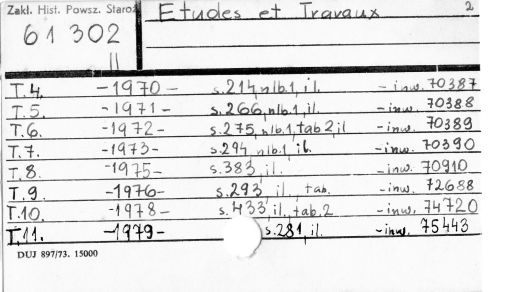 Zakł. Hist. Powsz. Staroż Etudes et Travaux 2
61 302
II
T.4. -1970- s.214, nlb.1, il. - inw. 70387
T.5. -1971- s.266, nlb.1, il. - inw. 70388
T.6. -1972- s.275, nlb.1, tab 2, il - inw. 70389
T.7. -1973- s.294, nlb.1, il. - inw. 70390
T.8. -1975- s.383, il. - inw. 70910
T.9 -1976- s.293 il., tab. - inw. 72688
T.10. -1978- s.433, il., tab.2 - inw. 74720
T.11. -1979- s.281, il. - inw. 75443
DUJ 897/73. 15000